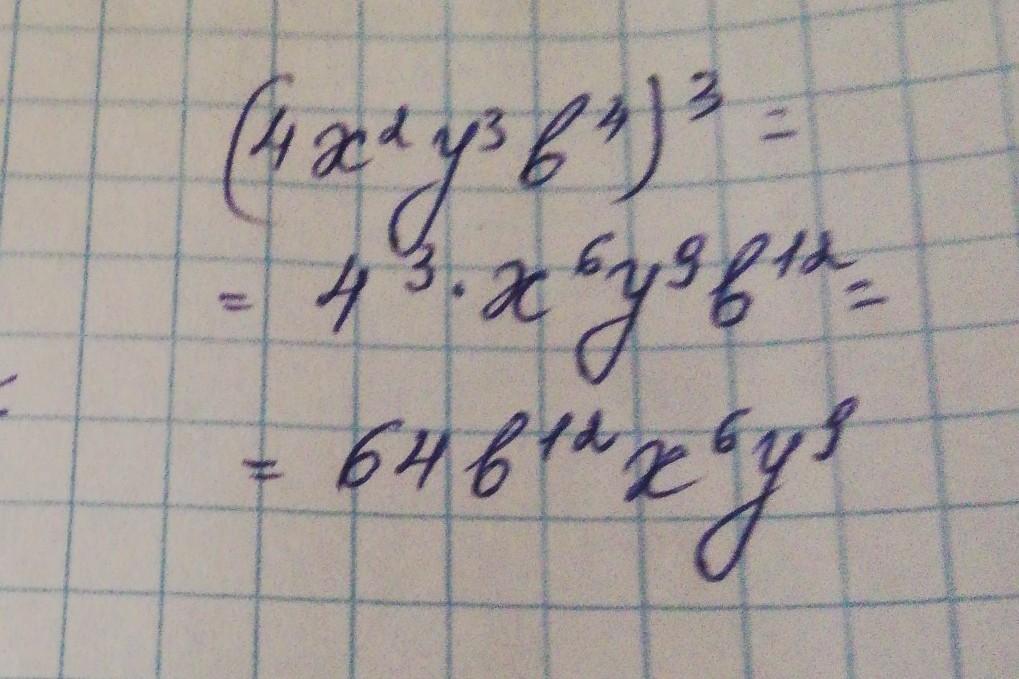 (4x²y³b⁴)³ =
= 4³ · x⁶y⁹b¹² =
= 64b¹²x⁶y⁹